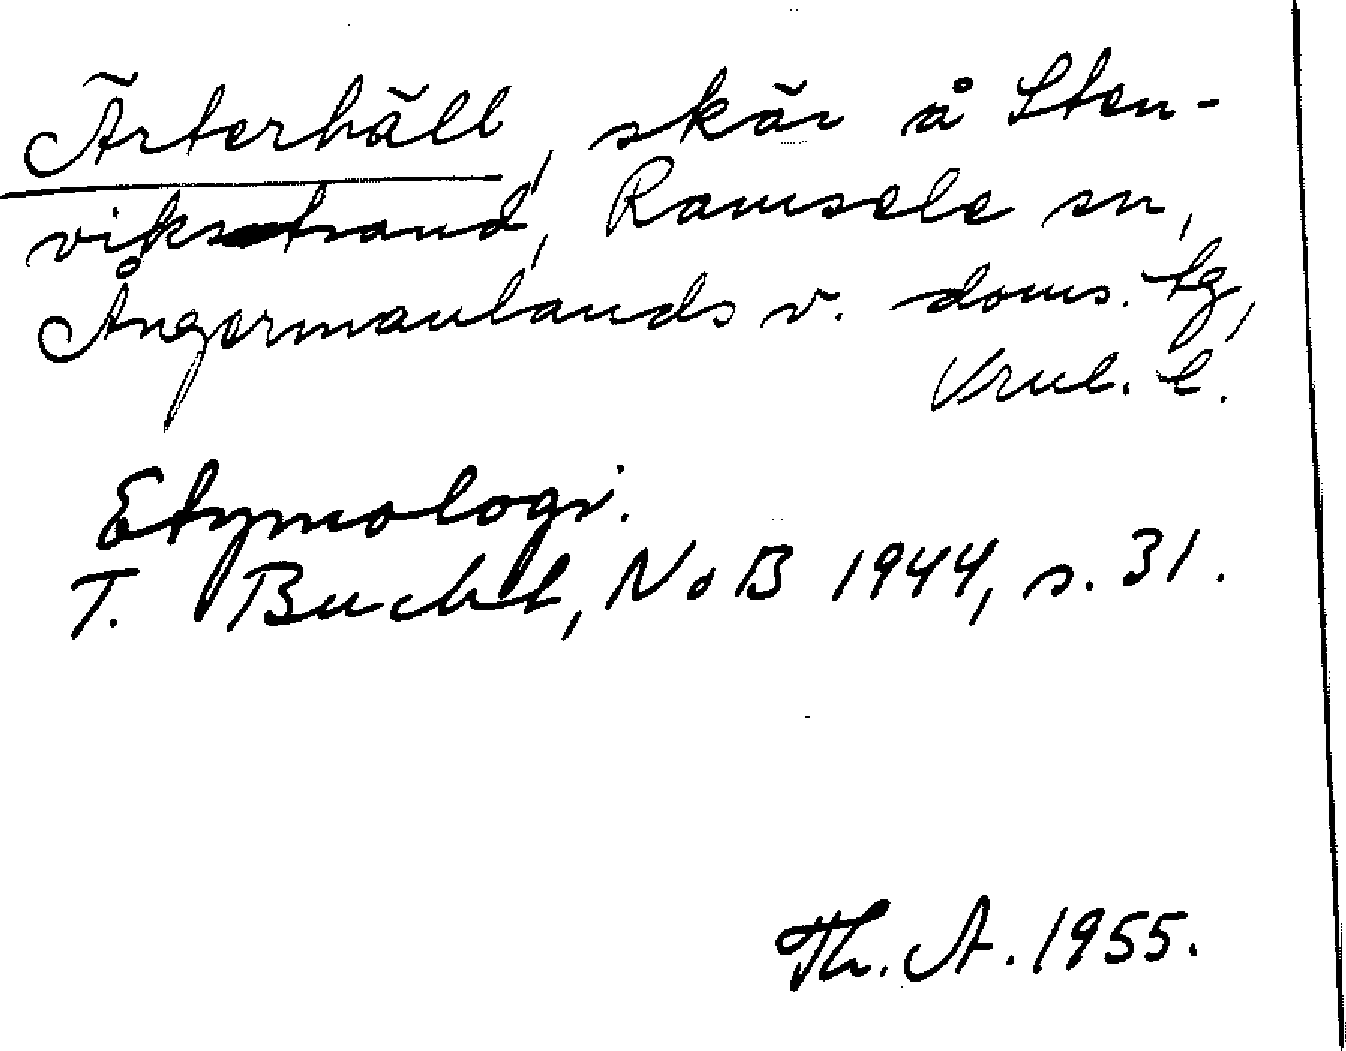 Ärterhäll, skär å Sten-
viksstrand, Ramsele sn,
Ångermanlands v. doms. tg,
Vnl. l.
Etymologi.
T. Bucht, NoB 1944, s. 31.
Th. A. 1955.